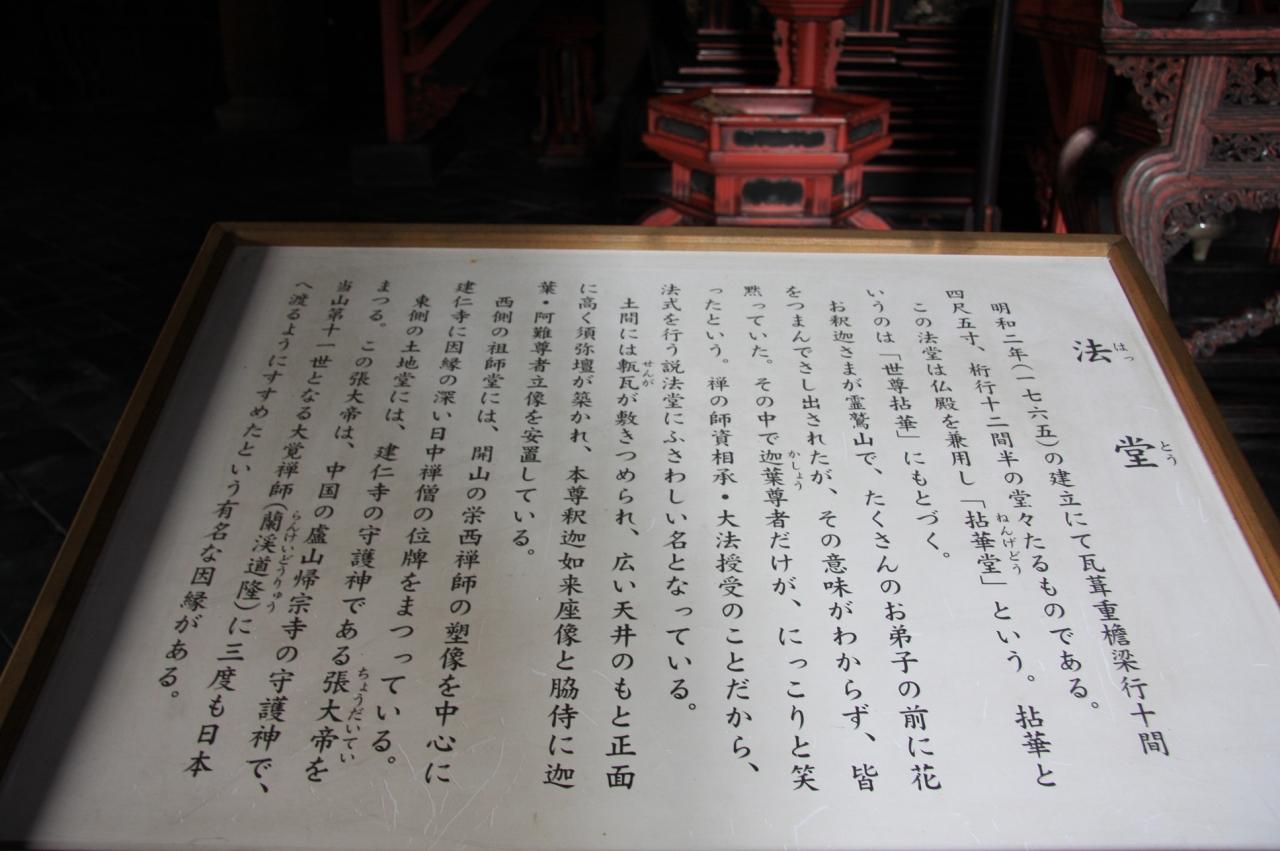 法堂
明和二年(一七六五)の建立にて瓦葺重檐梁行十間
四尺五寸、桁行十二間半の堂々たるものである。
この法堂は仏殿を兼用し「拈華堂」という。拈華と
いうのは「世尊拈華」にもとづく。
お釈迦さまが霊鷲山で、たくさんのお弟子の前に花
をつまんでさし出されたが、その意味がわからず、皆
黙っていた。その中で迦葉尊者だけが、にっこりと笑
ったという。禅の師資相承・大法授受のことだから、
法式を行う説法堂にふさわしい名となっている。
土間には甎瓦が敷きつめられ、広い天井のもと正面
に高く須弥壇が築かれ、本尊釈迦如来座像と脇侍に迦
葉・阿難尊者立像を安置している。
西側の祖師堂には、開山の栄西禅師の塑像を中心に
建仁寺に因縁の深い日中禅僧の位牌をまつっている。
東側の土地堂には、建仁寺の守護神である張大帝を
まつる。この張大帝は、中国の廬山帰宗寺の守護神で、
当山第十一世となる大覚禅師(蘭渓道隆)に三度も日本
へ渡るようにすすめたという有名な因縁がある。
はっ
とう
ねんげどう
かしょう
せんが
ちょうだいてい
らんけいどうりゅう